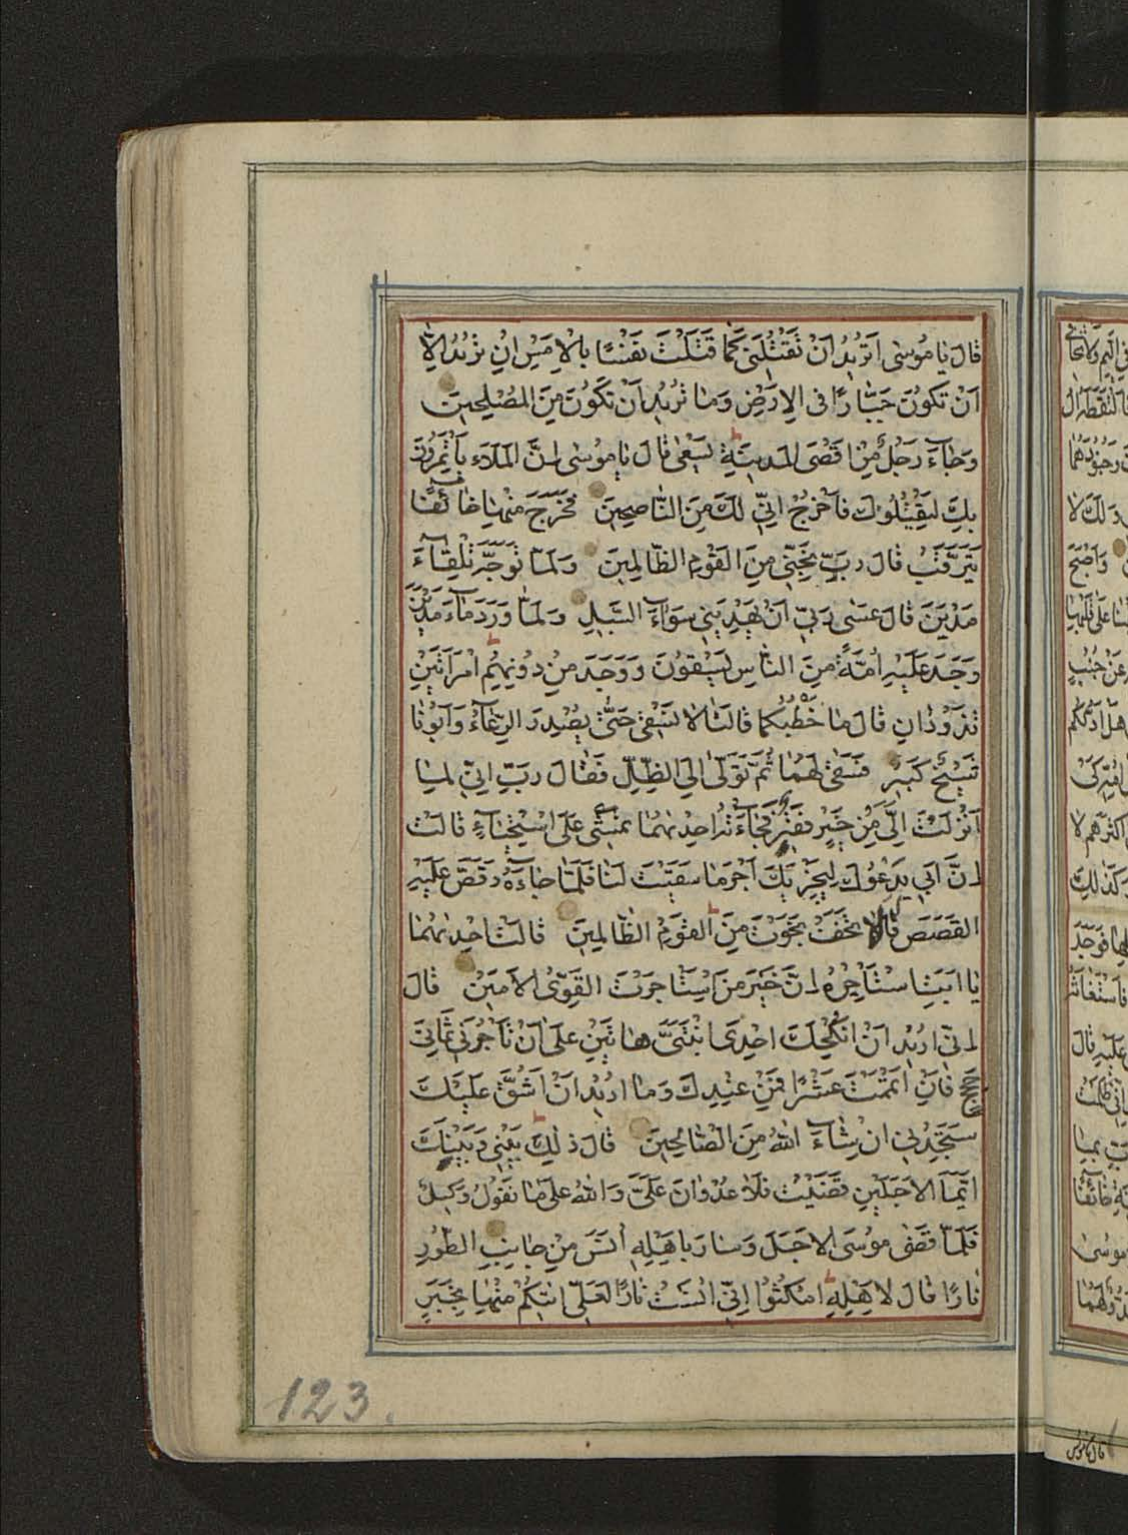 قَالَ يَا مُوسٰى اَتُرٖيدُ اَنْ تَقْتُلَنٖى كَمَا قَتَلْتَ نَفْسًا بِالْاَمْسِ اِنْ تُرٖيدُ اِلَّا
اَنْ تَكُونَ جَبَّارًا فِى الْاَرْضِ وَمَا تُرٖيدُ اَنْ تَكُونَ مِنَ الْمُصْلِحٖينَ
وَجَاۤءَ رَجُلٌ مِنْ اَقْصَى الْمَدٖينَةِ يَسْعٰى قَالَ يَا مُوسٰى اِنَّ الْمَلَاَ يَأْتَمِرُونَ
بِكَ لِيَقْتُلُوكَ فَاخْرُجْ اِنّٖى لَكَ مِنَ النَّاصِحٖينَ فَخَرَجَ مِنْهَا خَاۤئِفًا
يَتَرَقَّبُ قَالَ رَبِّ نَجِّنٖى مِنَ الْقَوْمِ الظَّالِمٖينَ وَلَمَّا تَوَجَّهَ تِلْقَاۤءَ
مَدْيَنَ قَالَ عَسٰى رَبّٖى اَنْ يَهْدِيَنٖى سَوَاۤءَ السَّبٖيلِ وَلَمَّا وَرَدَ مَاۤءَ مَدْيَنَ
وَجَدَ عَلَيْهِ اُمَّةً مِنَ النَّاسِ يَسْقُونَ وَوَجَدَ مِنْ دُونِهِمُ امْرَاَتَيْنِ
تَذُودَانِ قَالَ مَا خَطْبُكُمَا قَالَتَا لَا نَسْقٖى حَتّٰى يُصْدِرَ الرِّعَاۤءُ وَاَبُونَا
شَيْخٌ كَبٖيرٌ فَسَقٰى لَهُمَا ثُمَّ تَوَلّٰى اِلَى الظِّلِّ فَقَالَ رَبِّ اِنّٖى لِمَا
اَنْزَلْتَ اِلَىَّ مِنْ خَيْرٍ فَقٖيرٌ فَجَاۤءَتْهُ اِحْدٰيهُمَا تَمْشٖى عَلَى اسْتِحْيَاۤءٍ قَالَتْ
اِنَّ اَبٖى يَدْعُوكَ لِيَجْزِيَكَ اَجْرَ مَا سَقَيْتَ لَنَا فَلَمَّا جَاۤءَهُ وَقَصَّ عَلَيْهِ
الْقَصَصَ قَالَ لَا تَخَفْ نَجَوْتَ مِنَ الْقَوْمِ الظَّالِمٖينَ قَالَتْ اِحْدٰيهُمَا
يَا اَبَتِ اسْتَأْجِرْهُ اِنَّ خَيْرَ مَنِ اسْتَأْجَرْتَ الْقَوِىُّ الْاَمٖينُ قَالَ
اِنّٖى اُرٖيدُ اَنْ اُنْكِحَكَ اِحْدَى ابْنَتَىَّ هَاتَيْنِ عَلٰى اَنْ تَأْجُرَنٖى ثَمَانِىَ
حِجَجٍ فَاِنْ اَتْمَمْتَ عَشْرًا فَمِنْ عِنْدِكَ وَمَا اُرٖيدُ اَنْ اَشُقَّ عَلَيْكَ
سَتَجِدُنٖى اِنْ شَاۤءَ اللّٰهُ مِنَ الصَّالِحٖينَ قَالَ ذٰلِكَ بَيْنٖى وَبَيْنَكَ
اَيَّمَا الْاَجَلَيْنِ قَضَيْتُ فَلَا عُدْوَانَ عَلَىَّ وَاللّٰهُ عَلٰى مَا نَقُولُ وَكٖيلٌ
فَلَمَّا قَضٰى مُوسَى الْاَجَلَ وَسَارَ بِاَهْلِهٖ اٰنَسَ مِنْ جَانِبِ الطُّورِ
نَارًا قَالَ لِاَهْلِهِ امْكُثُوا اِنّٖى اٰنَسْتُ نَارًا لَعَلّٖى اٰتٖيكُمْ مِنْهَا بِخَبَرٍ
123.